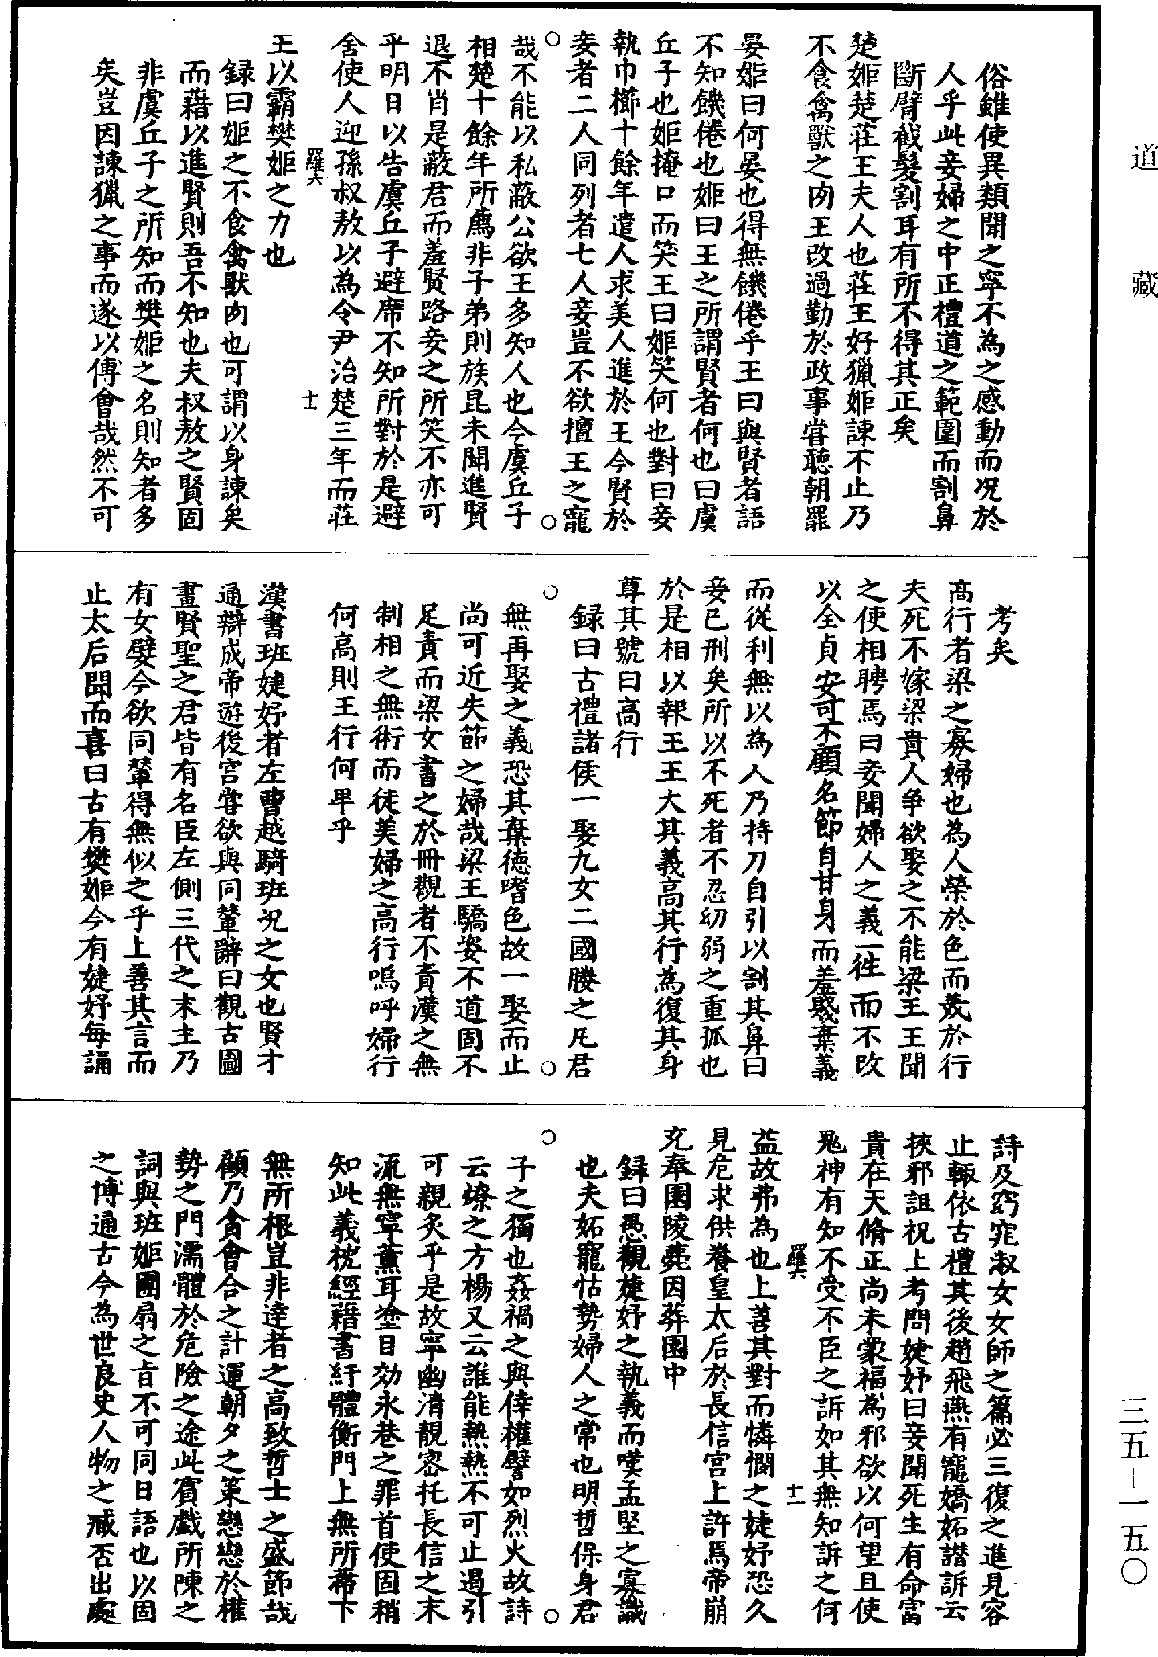 道藏
俗雖使異類聞之寧不為之感動而況於
人乎此妾婦之中正禮道之範圍而割鼻
斷臂截髮割耳有所不得其正矣
楚姬楚莊王夫人也莊王好獵姬諫不止乃
不食禽獸之肉王改過勤於政事嘗聽朝罷
晏姬曰何晏也得無饑倦乎王曰與賢者語
不知饑倦也姬曰王之所謂賢者何也曰虞
丘子也姬掩口而笑王曰姬笑何也對曰妾
執巾櫛十餘年遣人求美人進於王今賢於
妾者二人同列者七人妾豈不欲擅王之寵
哉不能以私蔽公欲王多知人也今虞丘子
相楚十餘年所薦非子弟則族昆未聞進賢
退不肖是蔽君而羞賢路妾之所笑不亦可
乎明日以告虞丘子避席不知所對於是避
舍使人迎孫叔敖以為令尹治楚三年而莊
羅六 十一
王以霸樊姬之力也
録曰姬之不食禽獸肉也可謂以身諫矣
而藉以進賢則吾不知也夫叔敖之賢固
非虞丘子之所知而樊姬之名則知者多
矣豈因諫獵之事而遂以傅會哉然不可
考矣
高行者梁之寡婦也為人榮於色而美於行
夫死不嫁梁貴人爭欲娶之不能梁王王聞
之使相聘焉曰妾聞婦人之義一徃而不改
以全貞安可不顧名節自甘身而羞賤棄義
而從利無以為人乃持刀自引以割其鼻曰
妾已刑矣所以不死者不忍幼弱之重孤也
於是相以報王王大其義高其行為復其身
尊其號曰高行
録曰古禮諸侯一娶九女二國媵之凡君
無再娶之義恐其棄德嗜色故一娶而止
尚可近失節之婦哉梁王驕姿不道固不
足責而梁女書之於冊觀者不責漢之無
制相之無術而徒美婦之高行嗚呼婦行
何高則王行何卑乎
漢書班婕妤者左曹越騎班況之女也賢才
通辯成帝遊後宮嘗欲與同輦辭曰觀古圖
畫賢聖之君皆有名臣左側三代之末主乃
有女嬖今欲同輦得無似之乎上善其言而
止太后聞而喜曰古有樊姬今有婕妤每誦
詩及窈窕淑女女師之篇必三復之進見容
止輙依古禮其後趙飛燕有寵嬌妬譖訴云
挾邪詛祝上考問婕妤曰妾聞死生有命富
貴在天脩正尚未蒙福為邪欲以何望且使
鬼神有知不受不臣之訴如其無知訴之何
羅六 十二
益故弗為也上善其對而憐憫之婕妤恐久
見危求供養皇太后於長信宮上許焉帝崩
充奉園陵薨因葬園中
録曰愚觀婕妤之執義而嘆孟堅之寡識
也夫妬寵怙勢婦人之常也明哲保身君
子之獨也姦禍之與倖權譬如烈火故詩
云燎之方楊又云誰能熱熱不可止遏引
可親炙乎是故寧幽清靚密托長信之末
流無寧薰耳塗目効永巷之罪首使固稍
知此義枕經藉書紆體衡門上無所蔕下
無所根豈非達者之高致哲士之盛節哉
顧乃貪會合之計運朝夕之策戀戀於權
勢之門濡體於危險之途此賓戲所陳之
詞與班姬團扇之旨不可同日語也以固
之博通古今為世良史人物之臧否出處
三五-一五〇